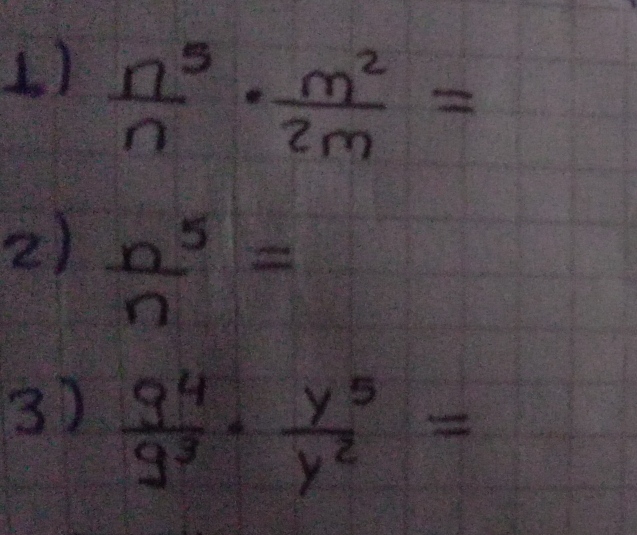 1) n⁵/n · m²/2m =
2) n⁵/n =
3) g⁴/g³ · y⁵/y² =